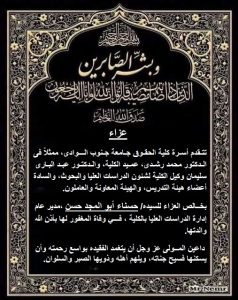 بسم الله الرحمن الرحيم
وبشر الصابرين
الذين إذا أصابتهم مصيبة قالوا إنا لله وإنا إليه راجعون
صدق الله العظيم
عزاء
تتقدم أسرة كلية الحقوق جامعة جنوب الوادى، ممثلاً فى
الدكتور محمد رشدى، عميد الكلية، والدكتور عبد البارى
سليمان وكيل الكلية لشئون الدراسات العليا والبحوث، والسادة
أعضاء هيئة التدريس، والهيئة المعاونة والعاملون.
بخالص العزاء للسيدة/ حسناء أبو المجد حسن مدير عام
إدارة الدراسات العليا بالكلية ، فى وفاة المغفور لها بأذن الله
والدتها.
داعين المولى عز وجل أن يتغمد الفقيده بواسع رحمته وأن
يسكنها فسيح جناته، ويلهم أهله وذويها الصبر والسلوان.